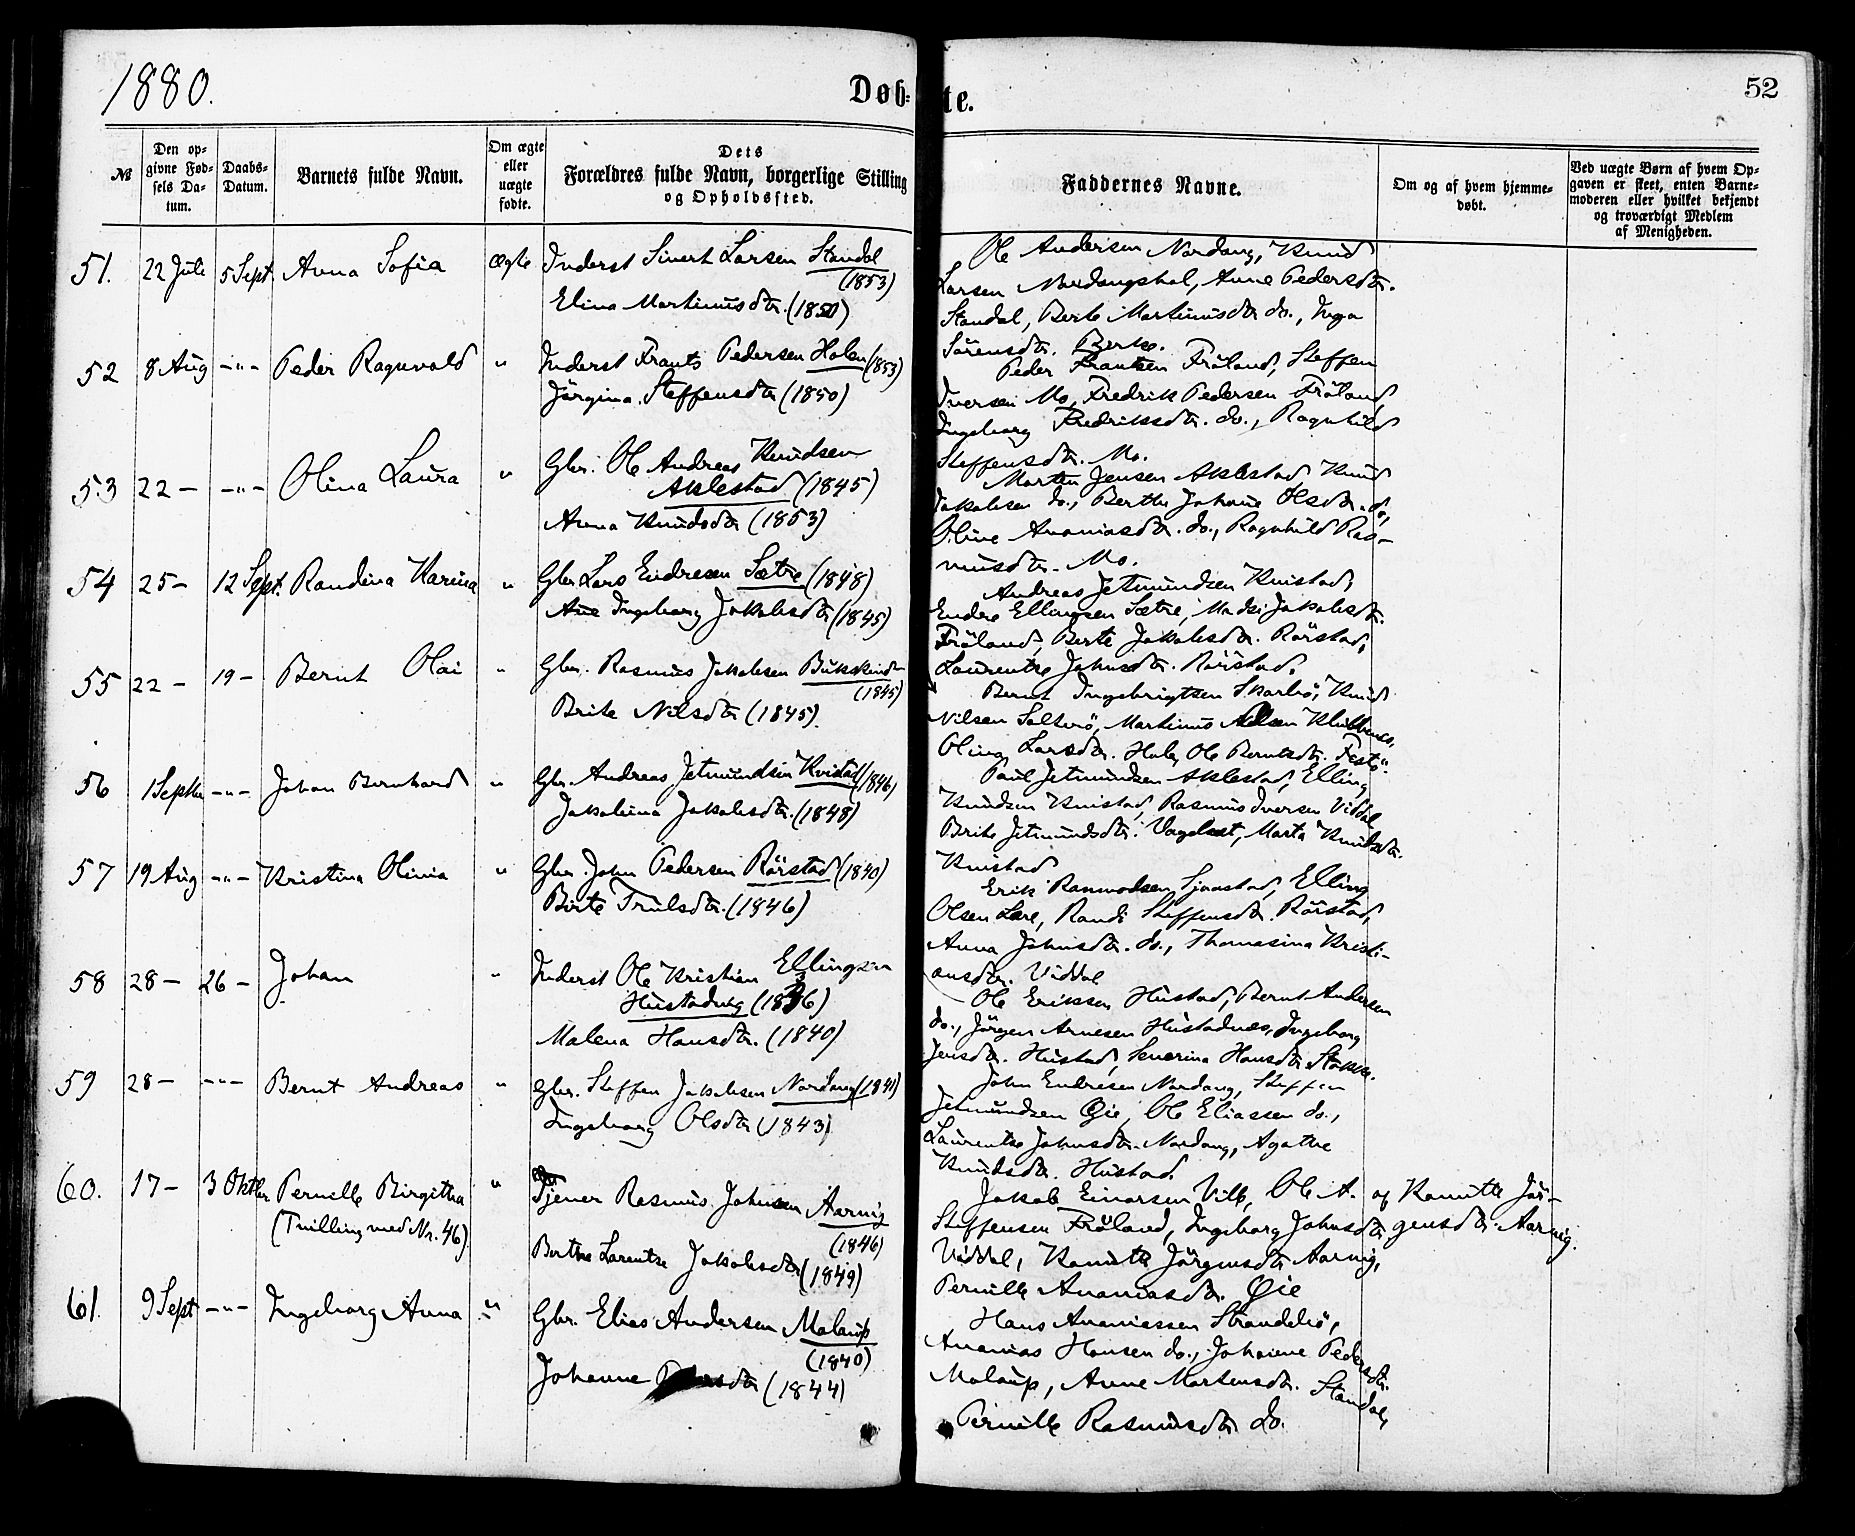 1880.
Døb-
te.
52
№
Den op-
givne Fød-
sels Da-
tum.
Daabs-
Datum.
Barnets fulde Navn.
Om ægte
eller
uægte
fødte.
Dets
Forældres fulde Navn, borgerlige Stilling
og Opholdssted.
Faddernes Navne.
Om og af hvem hjemme-
døbt.
Ved uægte Børn af hvem Op-
gaven er skeet, enten Barne-
moderen eller hvilket bekjendt
og troværdigt Medlem
af Menigheden.
51. 22 Juli 5 Sept. Anna Sofia ægte Inderst Sivert Larsen Standal
(1853)
Elina Martinusdtr. (1850)
Ole Andersen Nordang, Knud
Larsen Nordangshol, Anne Pedersdtr.
Standal, Berte Martinusdtr do., Inga
Sörensdtr.
52 8 Aug -"- Peder Ragnvald " Inderst Frants Pedersen Holen (1853)
Jörgina Steffensdtr (1850)
Peder Frantsen Fröland, Steffen
Iversen Mo, Fredrik Pedersen Fröland
Ingeborg Fredriksdtr. do., Ragnhild
Steffensdtr. Mo.
53 22 - -"- Olina Laura " Gbr. Ole Andreas Knudsen
Aklestad (1845)
Anna Knudsdtr (1853)
Morten Jensen Aklestad, Knud
Jakobsen do., Berthe Johane Olsdtr. do,
Oline Ananiasdtr. do., Ragnhild Ras-
musdtr. Mo.
54 25 - 12 Sept. Randina Karina " Gbr. Lars Endresen Sætre (1848)
Ane Ingeborg Jakobsdtr (1845)
Andreas Jetmundsen Kvistad,
Endre Ellingsen Sætre, Jakobsdtr.
Fröland, Berte Jakobsdtr. Rörstad,
Laurentse Johnsdtr. Rörstad.
55 22 - 19 - Bernt Olai " Gbr. Rasmus Jakobsen Bukskind
(1845)
Brite Nilsdtr (1845).
Bernt Ingebrigtsen Skorbö, Knud
Nilsen Salterö, Martinus
Olina Larsdtr. Hole, Ole Berntsdtr. Festö.
56 1 Septbr -"- Johan Bernhard " Gbr. Andreas Jetmundsen Kvistad (1846)
Jakobina Jakobsdtr. (1848)
Paul Jetmundsen Aklestad, Elling
Knudsen Kvistad, Rasmus Iversen Viddal
Brite Jetmundsdtr. Marta Knudsdtr.
Kvistad
57 19 Aug -"- Kristina Olivia " Gbr. John Pedersen Rörstad (1840)
Birte Trulsdtr. (1846)
Erik Rasmussen Elling
Olsen Randi Steffensdtr. Rörstad,
Anna Johnsdtr. do., Thomasina Kristi-
ansdtr. Viddal
58 28 - 26 - Johan " Inderst Ole Kristian Ellingsen
Hustadnes (1836)
Malena Hansdtr. (1840)
Ole Eriksen Hustad, Bernt Andersen
do., Jörgen Arnesen Hustadnæs, Ingeborg
Jensdtr. Hustad, Severina Hansdtr Stokke.
59 28 - -"- Bernt Andreas " Gbr. Steffen Jakobsen Nordang (1841)
Ingeborg Olsdtr (1843)
John Endresen Nordang, Steffen
Jetmundsen Øie, Ole Eliassen do.,
Laurentse Johnsdtr. Nordang, Agathe
Knudsdtr. Hustad.
60. 17 - 3 Oktbr Pernille Birgitha "
(Tvilling med Nr. 46)
Tjener Rasmus Johnsen Aarvig
(1846)
Berthe Larentse Jakobsdtr (1849)
Jakob Einarsen Ville, Ole A.
Steffensen Fröland, Ingeborg Johnsdtr
Viddal, Kanutte Jörgensdtr Aarvig,
Pernille Ananiasdtr. Øie
af Kanutte Jör-
gensdtr. Aarvig.
61. 9 Sept -"- Ingeborg Anna " Gbr. Elias Andersen Molaup
(1840)
Johanne (1844)
Hans Ananiassen Strandebö,
Ananias Hansen do., Johanne Pedersdtr.
Molaup, Anne Martensdtr. Standal,
Pernille Rasmusdtr do.